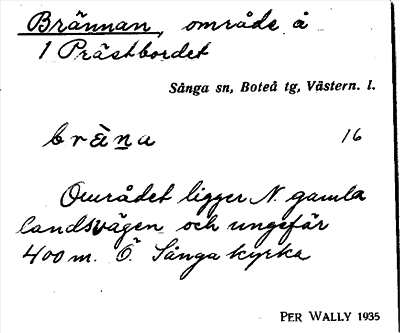 Brännan, område å
1 Prästbordet
Sånga sn, Boteå tg, Västern. l.
bràṇa 16
Området ligger N. gamla
landsvägen och ungefär
400 m. Ö. Sånga kyrka
PER WALLY 1935